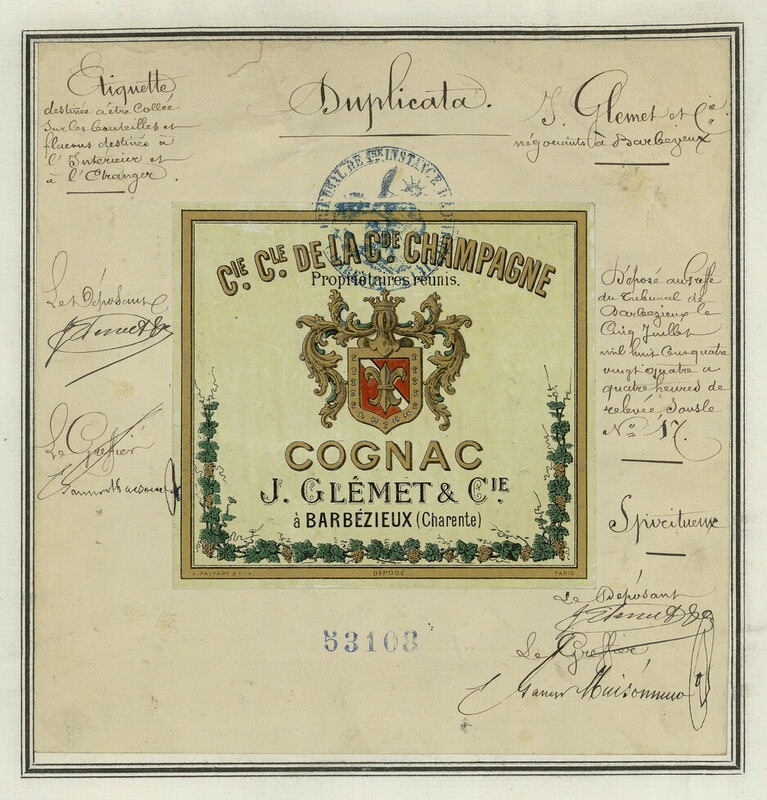 Etiquette
destinée à être Collée
sur les bouteilles et
flacons destinés à
l'Intérieur et
à l'Etranger.
Duplicata.
J. Glemet et Cie
négociants à Barbezieux
TRIBUNAL DE 1ERE INSTANCE
CIE. CLE. DE LA GDE CHAMPAGNE
Propriétaires réunis.
COGNAC
J. GLÉMET & CIE
à BARBÉZIEUX (Charente)
DÉPOSÉ
PARIS
Le Déposant
J Glemet & Cie
Le Greffier
Déposé au greffe
du Tribunal de
Barbezieux le
Cinq Juillet
mil huit Cent quatre
vingt quatre a
quatre heures de
relevée Sous le
No 17.
Spiritueux
Le Déposant
J Glemet & Cie
Le Greffier
53108